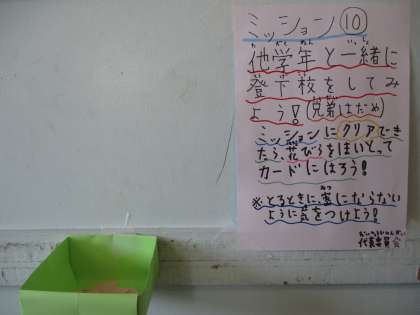 ミッション⑩
他学年と一緒に
登下校をしてみ
よう!(兄弟はだめ)
ミッションにクリアでき
たら、花びらをはいとって
カードにはろう!
※とるときに、密にならない
ように気をつけよう!
だいひょういいんかい
代表委員会